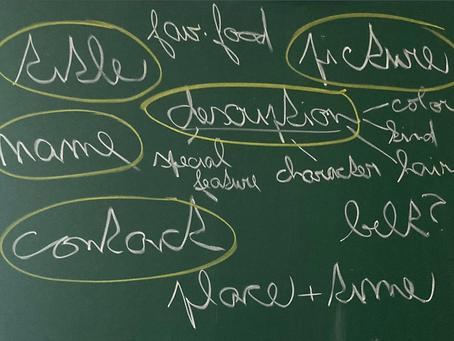 title
fav. food
picture
description
color
kind
hair
name
special
feature
character
contact
belt?
place + time